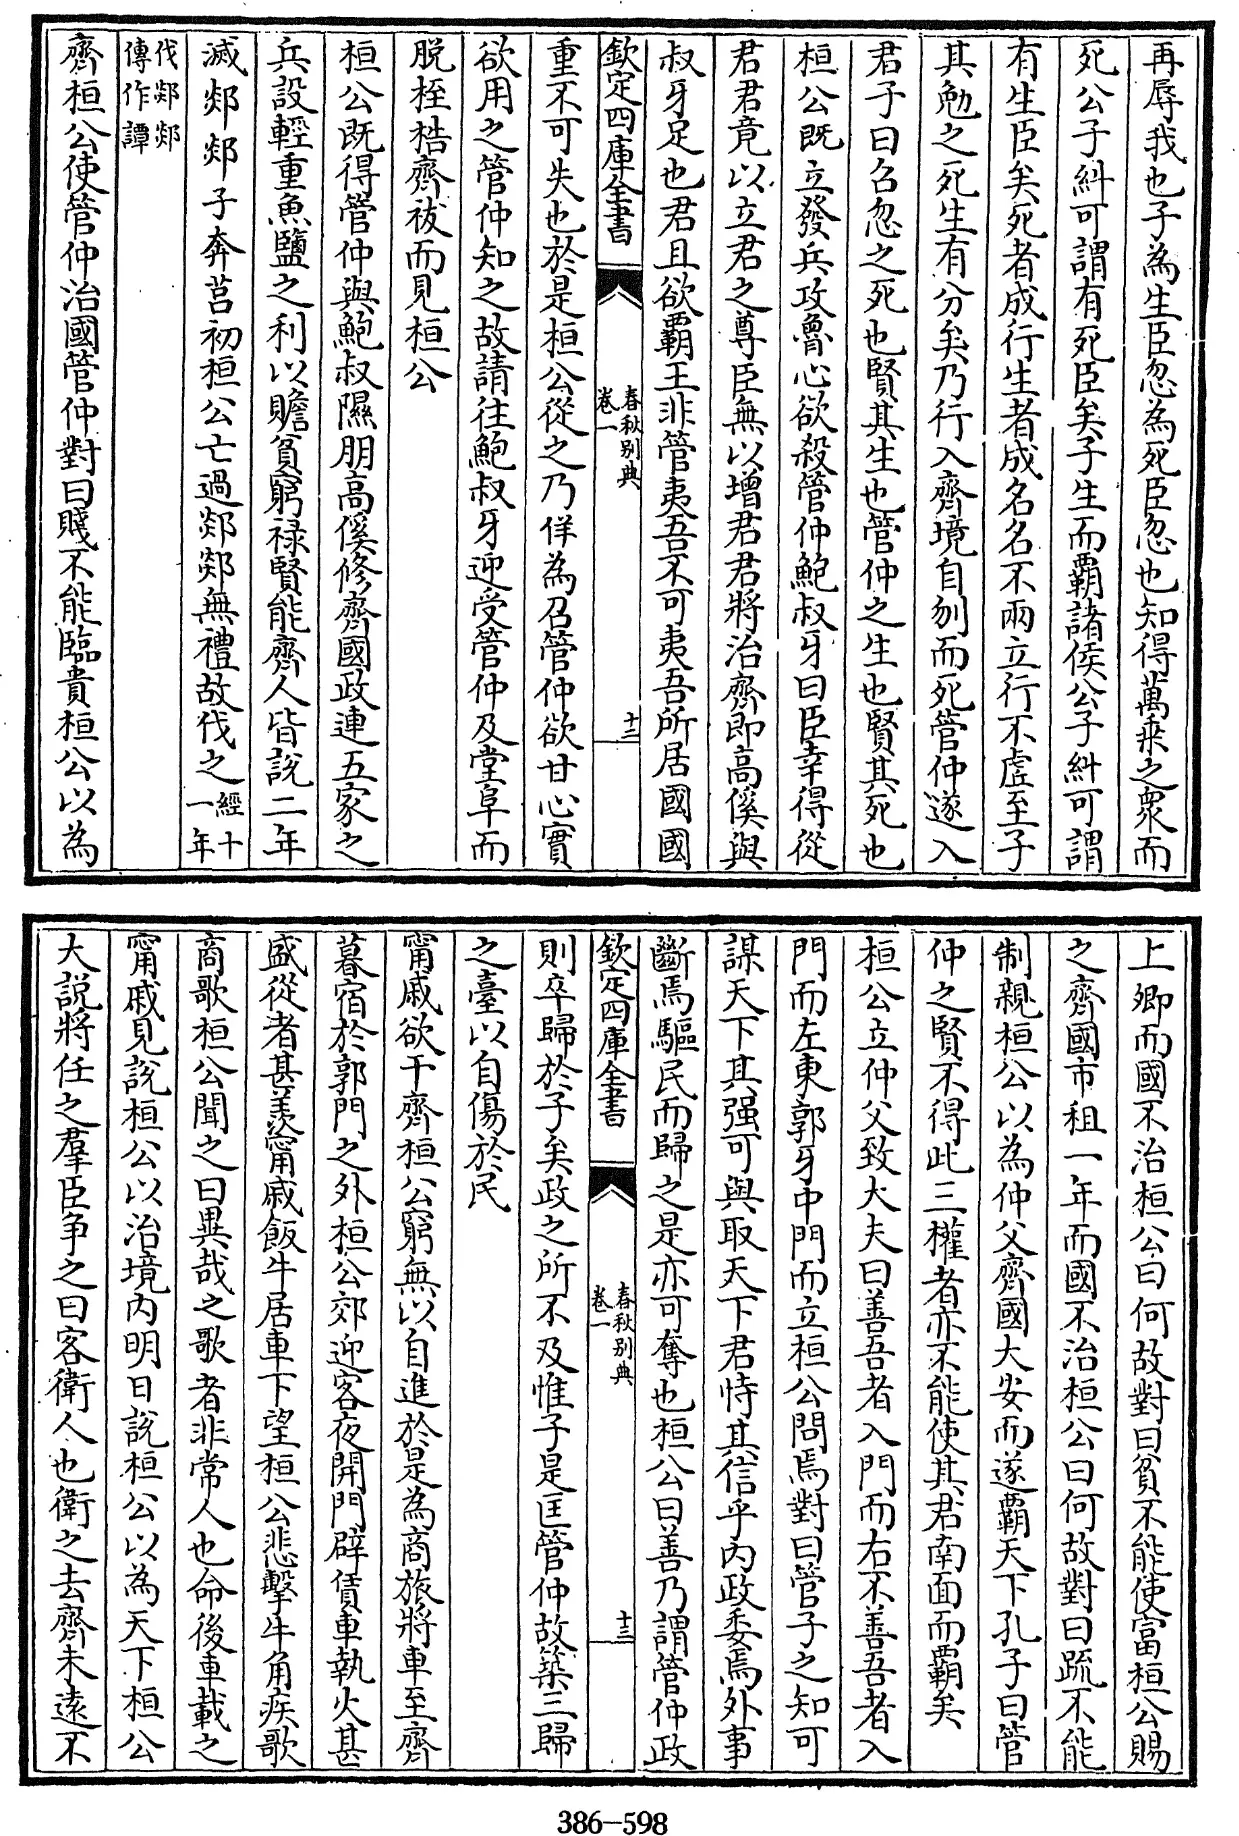 再辱我也子為生臣忽為死臣忽也知得萬乗之衆而
死公子糾可謂有死臣矣子生而霸諸侯公子糾可謂
有生臣矣死者成行生者成名名不兩立行不虚至子
其勉之死生有分矣乃行入齊境自刎而死管仲遂入
君子曰召忽之死也賢其生也管仲之生也賢其死也
桓公既立發兵攻魯心欲殺管仲鮑叔牙曰臣幸得從
君君竟以立君之尊臣無以增君君將治齊即高傒與
叔牙足也君且欲霸王非管夷吾不可夷吾所居國國
欽定四庫全書
春秋别典
卷一
十二
重不可失也於是桓公從之乃佯為召管仲欲甘心實
欲用之管仲知之故請往鮑叔牙迎受管仲及堂阜而
脱桎梏齊祓而見桓公
桓公既得管仲與鮑叔隰朋高傒修齊國政連五家之
兵設輕重魚鹽之利以贍貧窮禄賢能齊人皆説二年
滅郯郯子奔莒初桓公亡過郯郯無禮故伐之經十一年
伐郯郯傳作譚
齊桓公使管仲治國管仲對曰賤不能臨貴桓公以為
上卿而國不治桓公曰何故對曰貧不能使富桓公賜
之齊國市租一年而國不治桓公曰何故對曰疏不能
制親桓公以為仲父齊國大安而遂霸天下孔子曰管
仲之賢不得此三權者亦不能使其君南面而霸矣
桓公立仲父致大夫曰善吾者入門而右不善吾者入
門而左東郭牙中門而立桓公問焉對曰管子之知可
謀天下其强可與取天下君恃其信乎内政委焉外事
斷焉驅民而歸之是亦可奪也桓公曰善乃謂管仲政
欽定四庫全書
春秋别典
卷一
十三
則卒歸於子矣政之所不及惟子是匡管仲故築三歸
之臺以自傷於民
甯戚欲干齊桓公窮無以自進於是為商旅將車至齊
暮宿於郭門之外桓公郊迎客夜開門辟賃車執火甚
盛從者甚羡甯戚飯牛居車下望桓公悲擊牛角疾歌
商歌桓公聞之曰異哉之歌者非常人也命後車載之
甯戚見説桓公以治境内明日説桓公以為天下桓公
大説將任之羣臣争之曰客衛人也衛之去齊未逺不
386-598